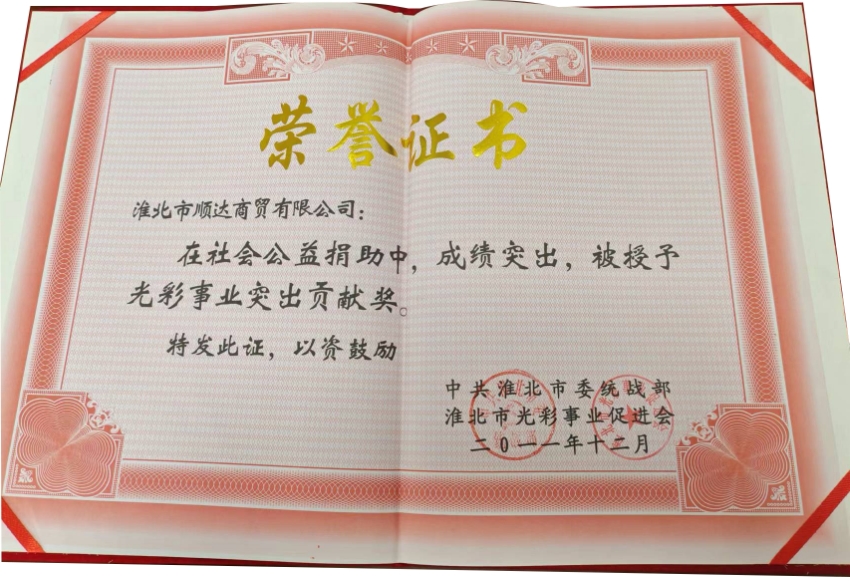 荣誉证书
淮北市顺达商贸有限公司：
在社会公益捐助中，成绩突出，被授予
光彩事业突出贡献奖。
特发此证，以资鼓励
中共淮北市委统战部
淮北市光彩事业促进会
二0一一年十二月